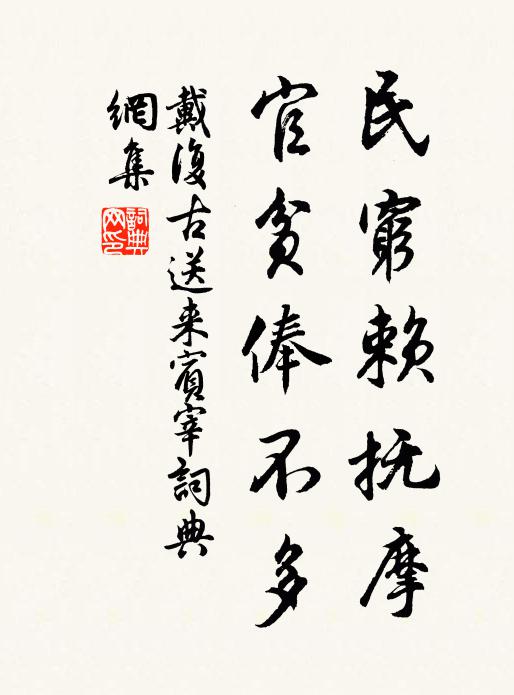 民窮賴抚摩
官貧俸不多
戴復古送来賓宰詞典
網集
詞典网印